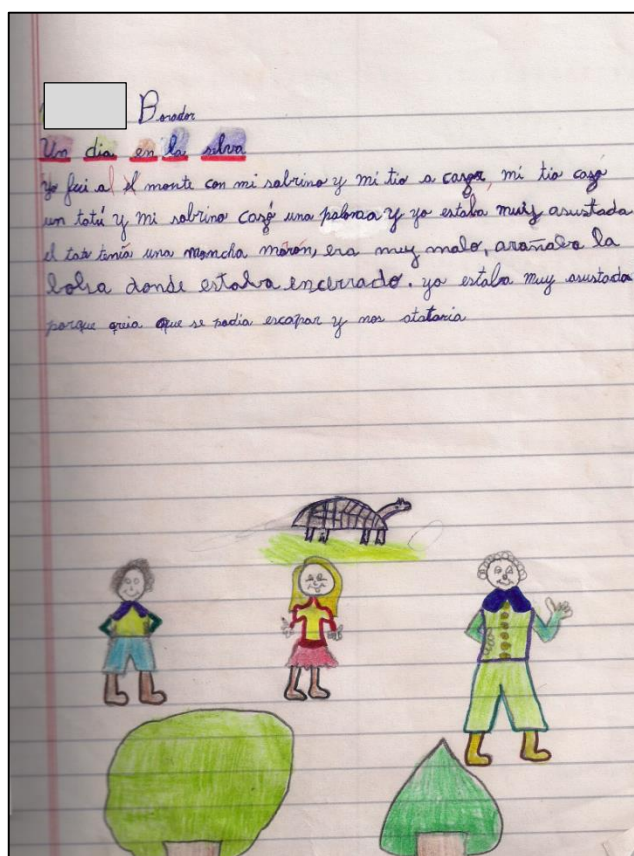 Borador
Un dia en la silva
Yo fui al monte con mi sobrino y mi tio a cazar, mi tio cazó
un tatú y mi sobrino cazó una paloma y yo estaba muy asustada
el tatu tenía una mancha marón, era muy malo, arañaba la
bolsa donde estaba encerrado. yo estaba muy asustada
porque creia que se podia escapar y nos